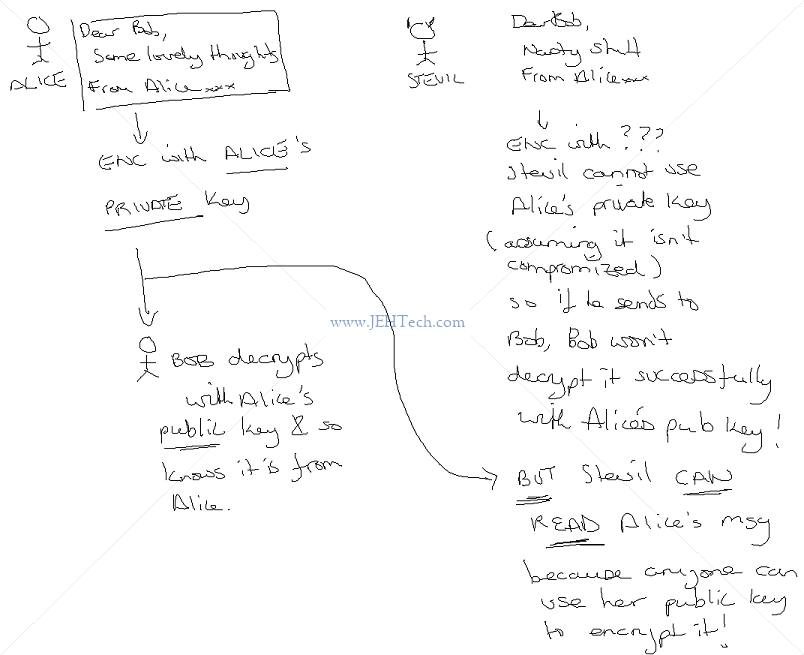 ALICE
Dear Bob,
Some lovely thoughts
From Alice xxx
ENC with ALICE's
PRIVATE Key
BOB decrypts
with Alice's
public key & so
knows it is from
Alice.
www.JEHTech.com
STEVIL
Dear Bob,
Nasty stuff
From Alice xxx
ENC with ???
Stevil cannot use
Alice's private key
(assuming it isn't
compromized)
so if he sends to
Bob, Bob won't
decrypt it successfully
with Alice's pub key!
BUT Stevil CAN
READ Alice's msg
because anyone can
use her public key
to encrypt it!